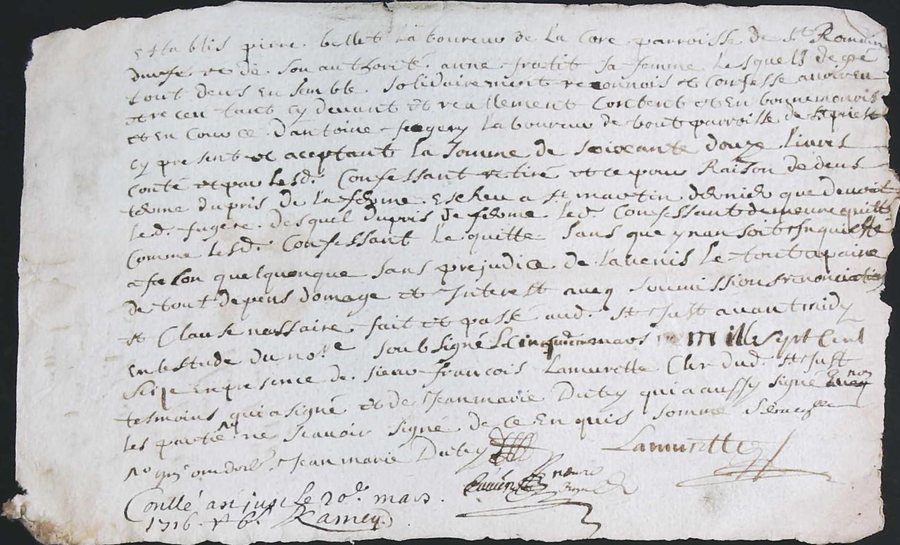 Establis pierre bellet laboureur de la Core parroisse de St Romain
et de son authorité anne sa femme lesquels de gré
tout deus ensemble solidairement reconnois et Confesse avoir eu
et receu tant cy devant et reallement Content et en bonne monois
et en Cource d'antoine fugery laboureur de parroisse de St priest
cy present et aceptant la somme de soixante douze livres
Conté et par lesd. Confessant retiré et ce pour Raison de deus
terme du pris de la ferme escheu a St martin dernier que devoit
led. fugere desquel du pris de ferme led. Confessant demeure quitte
Comme lesd. Confessant le quitte sans que y nan soit inquiette
a felon quelquonque sans prejudice de le tout a paine
de tout depens domage et Interest aveq soumission renonciation
et Clause nessaire fait et passé aud. St Just avant midy
en lestude du nore soubsigné le cinquieme mars mille sept Cent
seize en presence de sieur francois Lamurette Cler dud. St Just
tesmoins qui a signé et de Jean marie Duty qui a aussy signé non
les partie ne scavoir signe de ce enquis somme
Jean marie Duty Lamurette
Conllé a st just le 20e mars
1716 Ramey